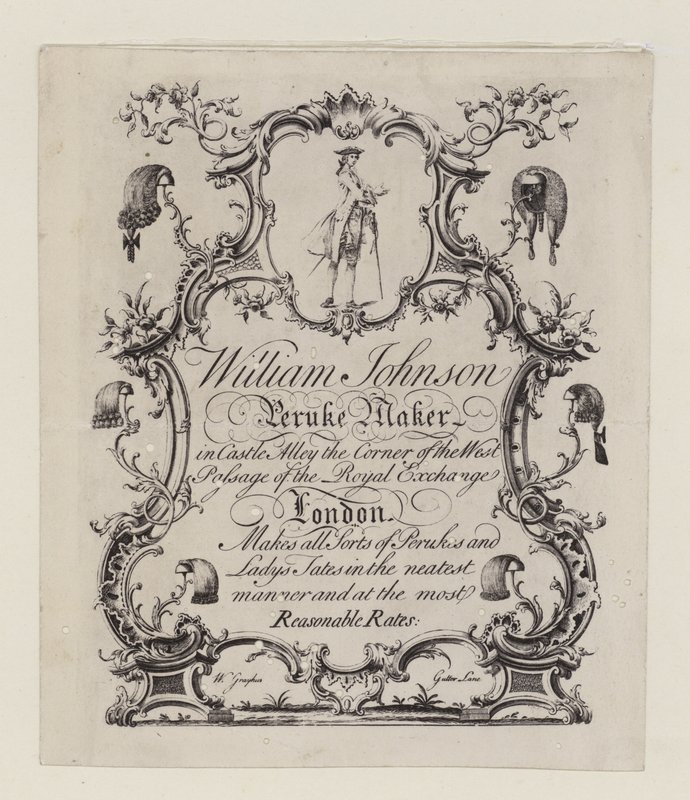 William Johnson
Peruke Maker
in Castle Alley the Corner of the West
Passage of the Royal Exchange
London.
Makes all Sorts of Perukes and
Ladys Tates in the neatest
manner and at the most
Reasonable Rates:
W. Grayhus
Gutter Lane